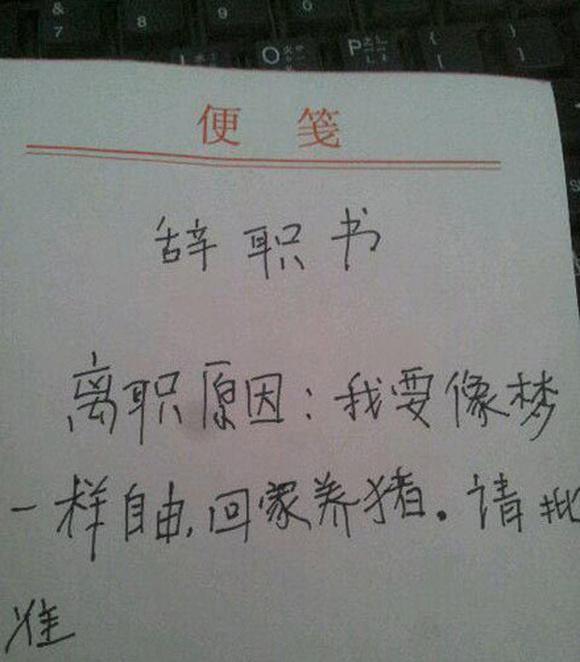 & 7
8
9
0
O
P
{ [
} ]
便 笺
辞职书
离职原因：我要像梦
一样自由，回家养猪。请批
准